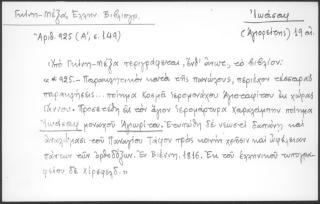 Γκίνη-Μέξα, Ελλην. Βιβλιογρ.
Ἰωάσαφ
Ἀριθ. 925 (Α', σ. 149)
(Ἁγιορείτης) 19 αἰ.
Ὑπὸ Γκίνη-Μέξα περιγράφεται, ἐνθ' ἀνωτ., τὸ βιβλίον:
« * 925. - Παρακλητικὸν κατὰ τῆς πανώλους, περιέχον τέσσαρας
παρακλήσεις... ποίημα Κοσμᾶ ἱερομονάχου Ἁγιοταφίτου ἐκ χώρας
Γάνου. Προσετέθη εἰς τὸν ἅγιον ἱερομάρτυρα Χαραλάμπην ποίημα
Ἰωάσαφ μοναχοῦ Ἁγιωρίτου. Ἐτυπώθη δὲ νεωστὶ δαπάνῃ καὶ
ἀναλώμασι τοῦ Παναγίου Τάφου πρὸς κοινὴν χρῆσιν καὶ ὠφέλειαν
πάντων τῶν ὀρθοδόξων. Ἐν Βιέννῃ, 1816. Ἐκ τοῦ ἑλληνικοῦ τυπογρα-
φείου δὲ Χίρσφελδ.»